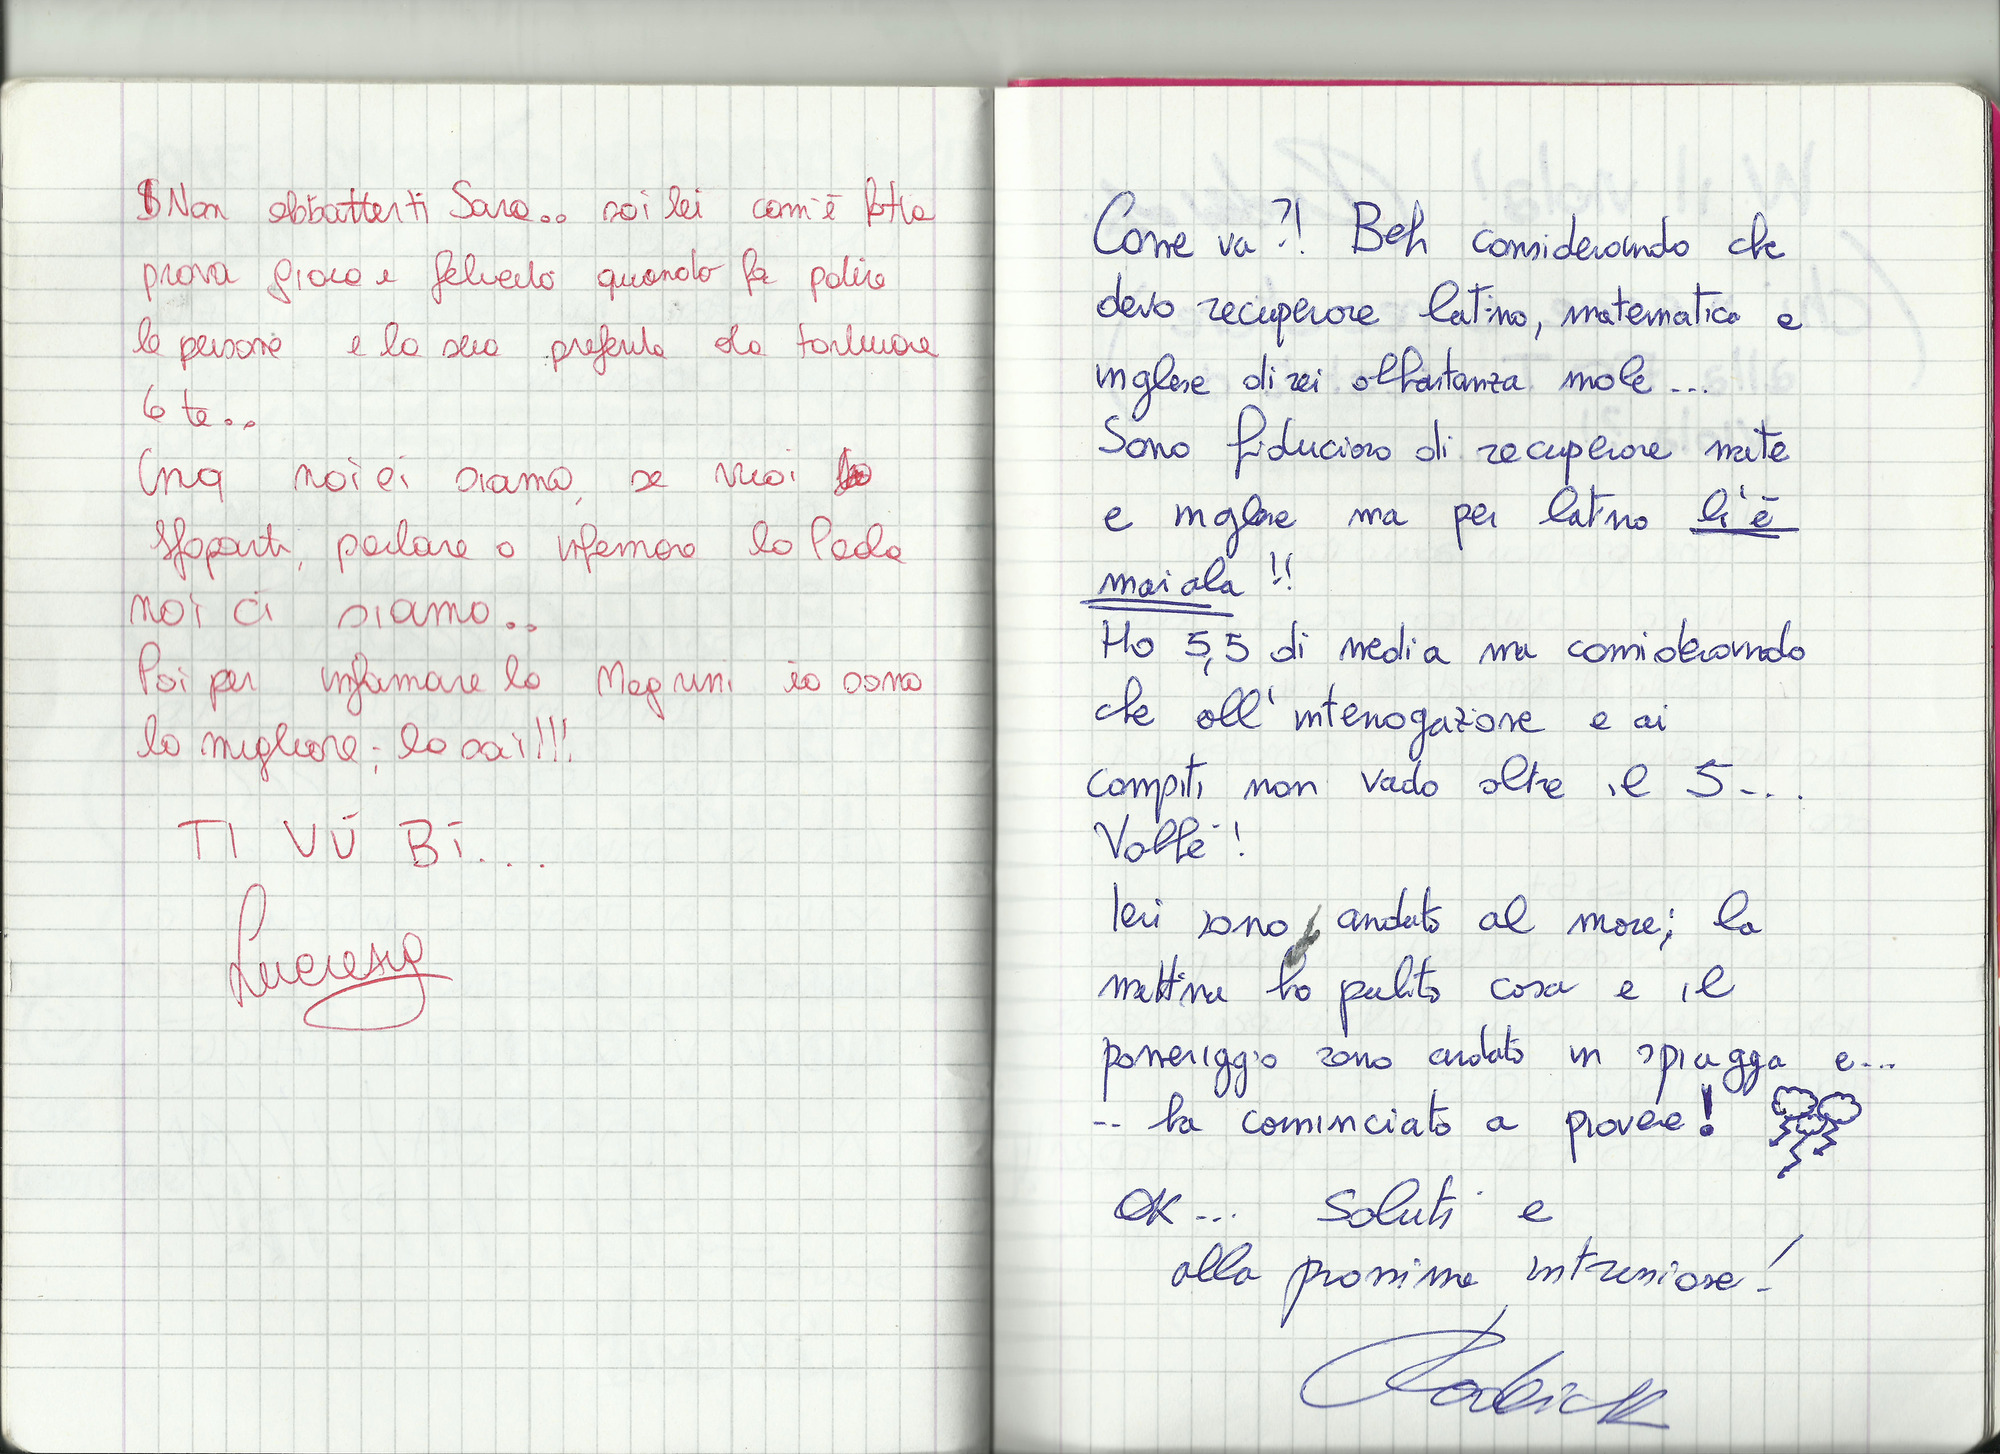 Non abbatterti Sara.. sai lei com'è fatta
prova gioia e felicità quando fa patire
le persone e la sua preferita da torturare
6 te..
Cmq noi ci siamo, se vuoi
sfogarti, parlare o infamare la Paola
noi ci siamo..
Poi per infamare la Magrini io sono
la migliore; lo sai!!!
TI VU BI....
Lucrezia
Come va?! Beh considerando che
devo recuperare latino, matematica e
inglese direi abbastanza male...
Sono fiducioso di recuperare mate
e inglese ma per latino li'è
maiala!!
Ho 5,5 di media ma considerando
che all'interrogazione e ai
compiti non vado oltre il 5...
Vabbè!
Ieri sono andato al mare; la
mattina ho pulito casa e il
pomeriggio sono andato in spiaggia e...
.. ha cominciato a piovere!
OK... Saluti e
alla prossima intrusione!